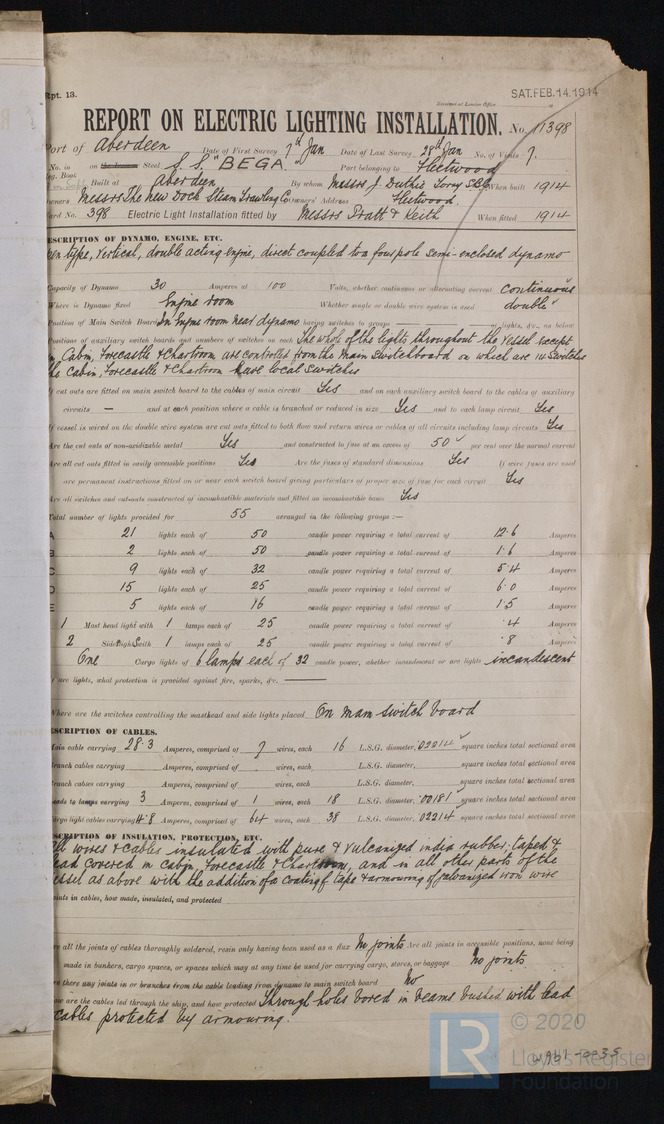 Rpt. 13.
SAT. FEB. 14. 1914
Received at London Office
REPORT ON ELECTRIC LIGHTING INSTALLATION. No. 11398
Port of Aberdeen Date of First Survey 7th Jan Date of Last Survey 28th Jan No. of Visits 7.
No. in on the Iron or Steel S.S. "BEGA" Port belonging to Fleetwood
Reg. Book
Built at Aberdeen By whom Messrs J. Duthie Torry S.B.Co When built 1914
Owners Messrs The New Dock Steam Trawling Co Owners' Address Fleetwood.
Yard No. 398 Electric Light Installation fitted by Messrs Pratt & Keith When fitted 1914
DESCRIPTION OF DYNAMO, ENGINE, ETC.
Open type, vertical, double acting engine, direct coupled to a four pole semi-enclosed dynamo
Capacity of Dynamo 30 Amperes at 100 Volts, whether continuous or alternating current continuous
Where is Dynamo fixed Engine room Whether single or double wire system is used double
Position of Main Switch Board In Engine room near dynamo having switches to groups lights, &c., as below
Positions of auxiliary switch boards and numbers of switches on each The whole of the lights throughout the vessel except
in Cabin, Forecastle & Chartroom are controlled from the Main Switchboard on which are 14 Switches
the Cabin, Forecastle & Chartroom have local switches
If cut outs are fitted on main switch board to the cables of main circuit Yes and on each auxiliary switch board to the cables of auxiliary
circuits — and at each position where a cable is branched or reduced in size Yes and to each lamp circuit Yes
If vessel is wired on the double wire system are cut outs fitted to both flow and return wires or cables of all circuits including lamp circuits Yes
Are the cut outs of non-oxidizable metal Yes and constructed to fuse at an excess of 50 per cent over the normal current
Are all cut outs fitted in easily accessible positions Yes Are the fuses of standard dimensions Yes If wire fuses are used
are permanent instructions fitted on or near each switch board giving particulars of proper size of fuse for each circuit Yes
Are all switches and cut-outs constructed of incombustible materials and fitted on incombustible bases Yes
Total number of lights provided for 55 arranged in the following groups :—
A 21 lights each of 50 candle power requiring a total current of 12.6 Amperes
B 2 lights each of 50 candle power requiring a total current of 1.6 Amperes
C 9 lights each of 32 candle power requiring a total current of 5.4 Amperes
D 15 lights each of 25 candle power requiring a total current of 6.0 Amperes
E 5 lights each of 16 candle power requiring a total current of 1.5 Amperes
1 Mast head light with 1 lamps each of 25 candle power requiring a total current of .4 Amperes
2 Side lights with 1 lamps each of 25 candle power requiring a total current of .8 Amperes
One Cargo lights of 6 lamps each of 32 candle power, whether incandescent or arc lights incandescent
If arc lights, what protection is provided against fire, sparks, &c. —
Where are the switches controlling the masthead and side lights placed On main switch board
DESCRIPTION OF CABLES.
Main cable carrying 28.3 Amperes, comprised of 7 wires, each 16 L.S.G. diameter, .02214 square inches total sectional area
Branch cables carrying Amperes, comprised of wires, each L.S.G. diameter, square inches total sectional area
Branch cables carrying Amperes, comprised of wires, each L.S.G. diameter, square inches total sectional area
Leads to lamps carrying 3 Amperes, comprised of 1 wires, each 18 L.S.G. diameter, .00181 square inches total sectional area
Cargo light cables carrying 4.8 Amperes, comprised of 64 wires, each 38 L.S.G. diameter, .02214 square inches total sectional area
DESCRIPTION OF INSULATION, PROTECTION, ETC.
All wires & cables insulated with pure & vulcanized india rubber, taped &
lead covered in cabin, Forecastle & Chartroom, and in all other parts of the
vessel as above with the addition of a coating of tape & armouring of galvanized iron wire
Joints in cables, how made, insulated, and protected
Are all the joints of cables thoroughly soldered, resin only having been used as a flux No joints Are all joints in accessible positions, none being
made in bunkers, cargo spaces, or spaces which may at any time be used for carrying cargo, stores, or baggage No joints
Are there any joints in or branches from the cable leading from dynamo to main switch board No
How are the cables led through the ship, and how protected Through holes bored in beams bushed with lead
cables protected by armouring.
LR
© 2020
Lloyd's Register
Foundation
W961-0035